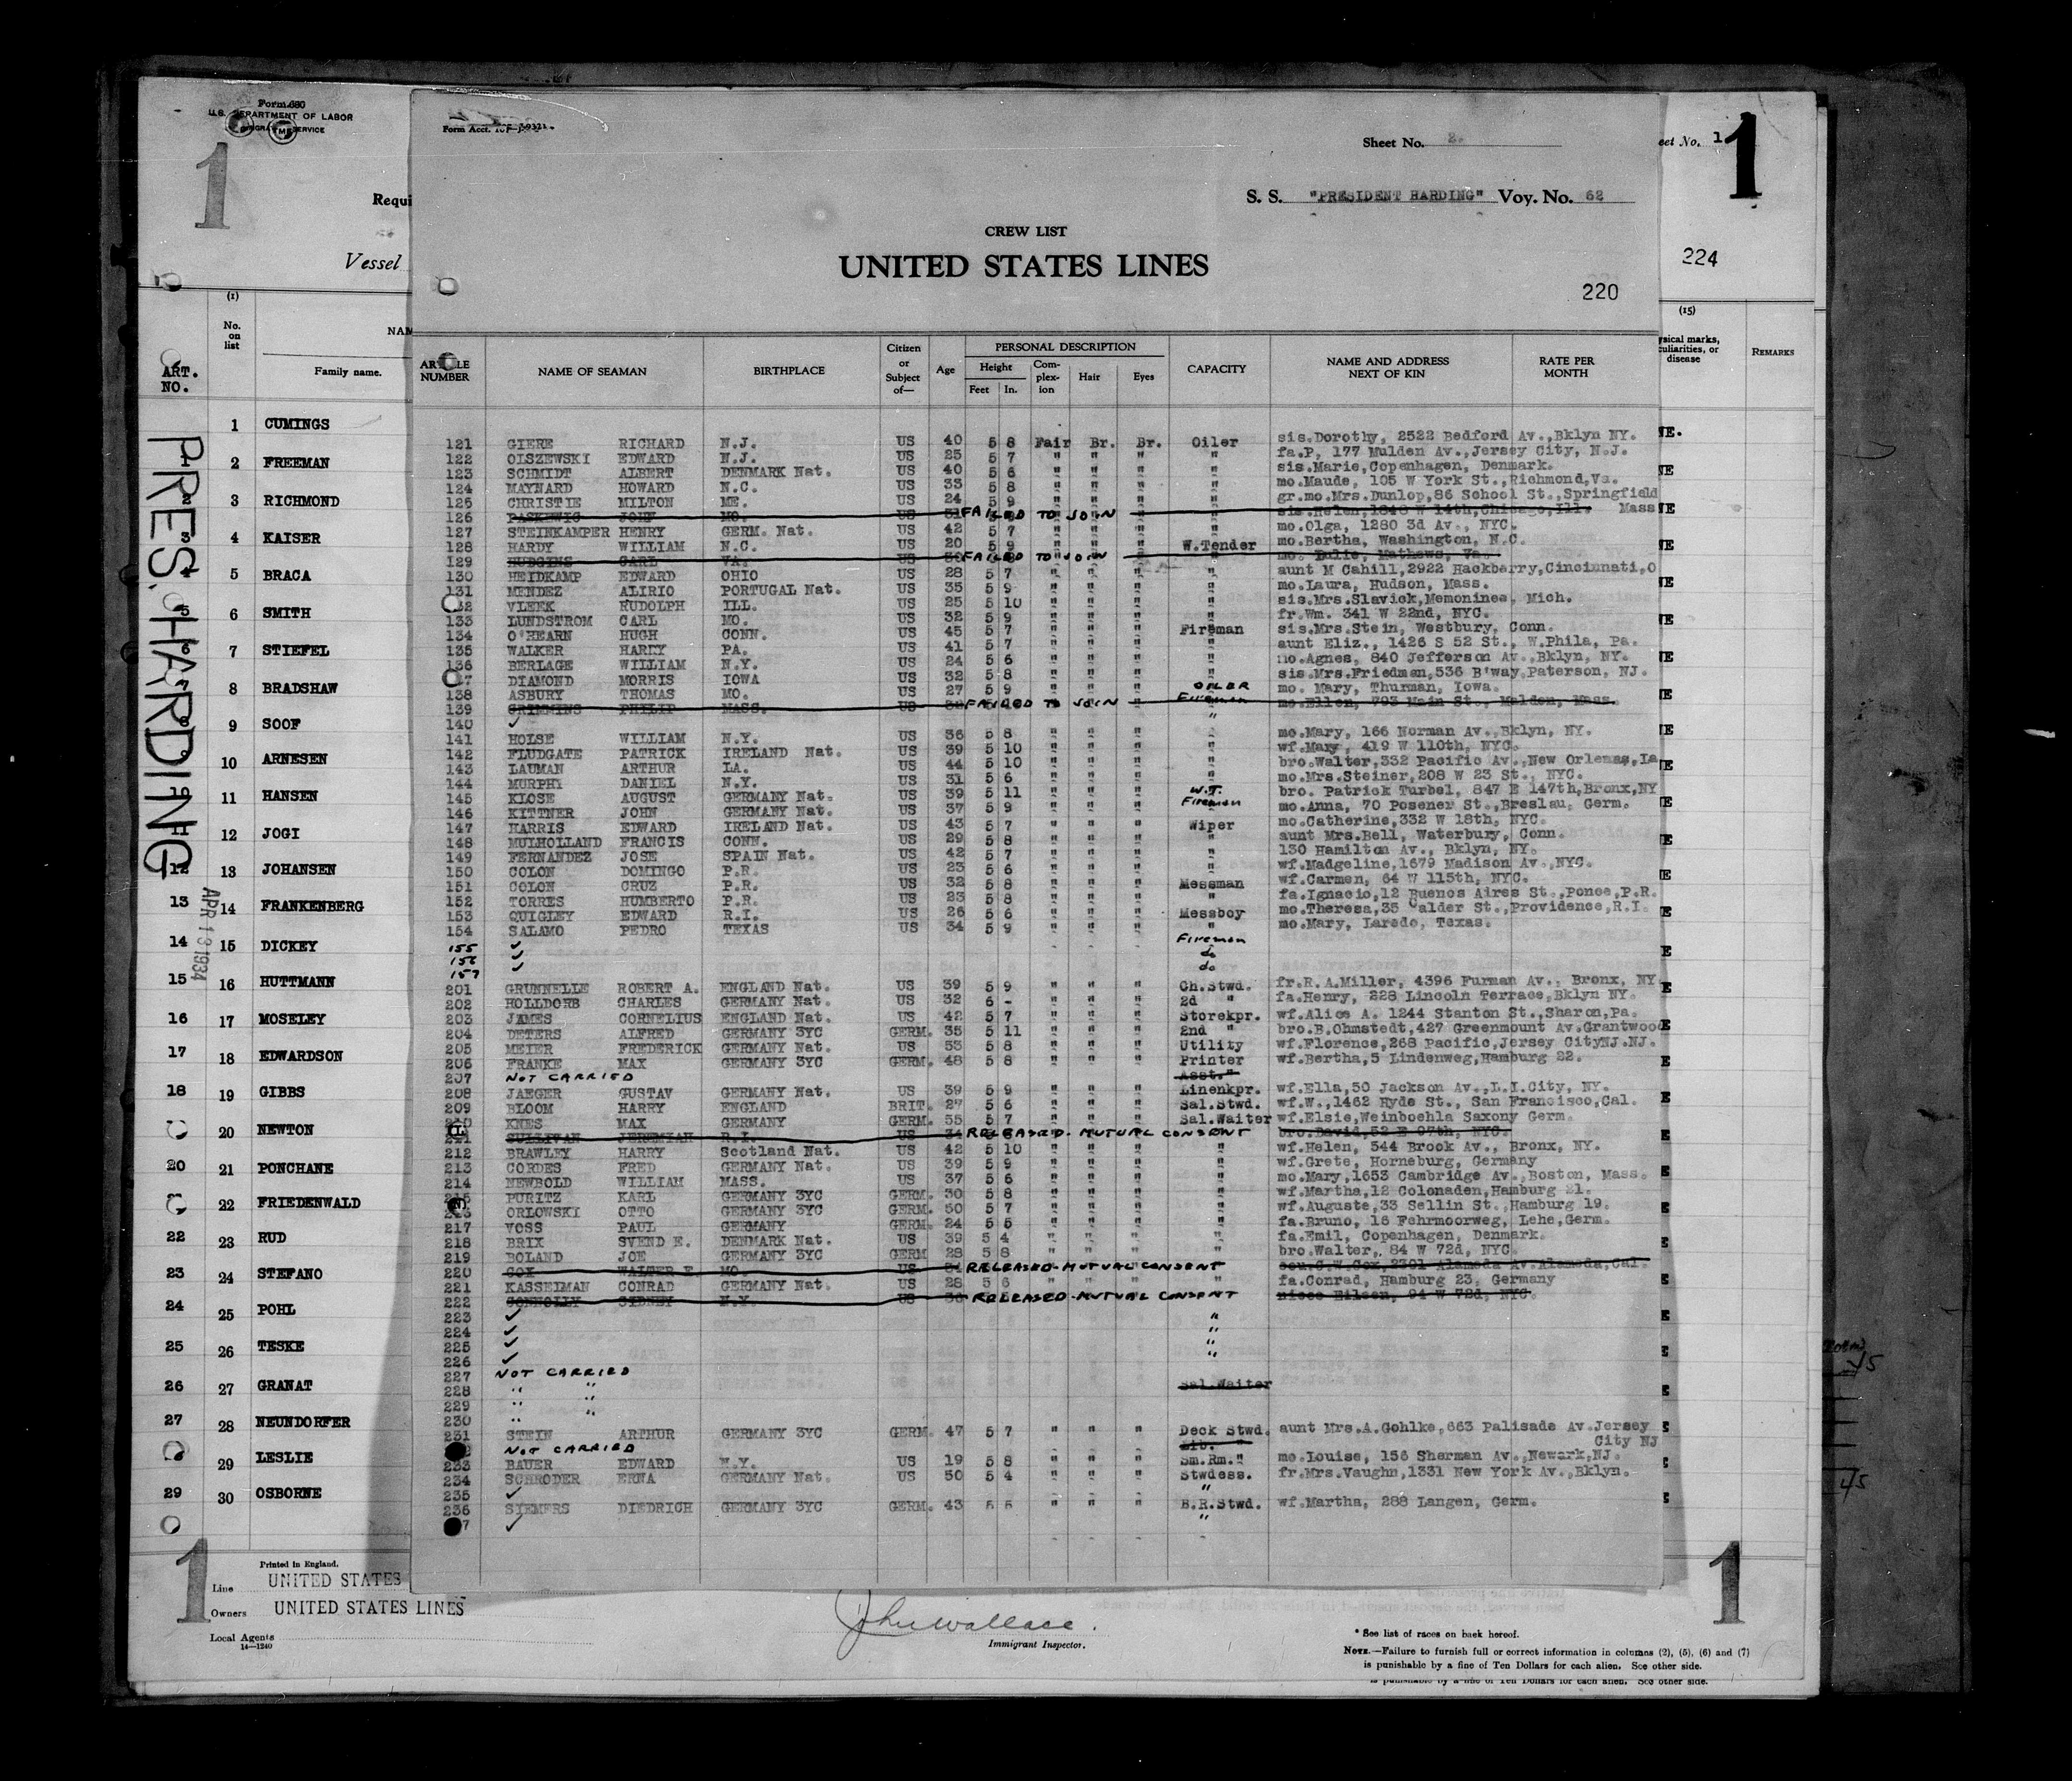 Form 680
U.S. DEPARTMENT OF LABOR
IMMIGRATION SERVICE
1
Requi
Vessel
(1)
No. on list
NAM
Family name.
ART. NO.
PRES. HARDING
APR 13 1934
1 CUMINGS
2 FREEMAN
3 RICHMOND
4 KAISER
5 BRACA
6 SMITH
7 STIEFEL
8 BRADSHAW
9 SOOF
10 ARNESEN
11 HANSEN
12 JOGI
12 13 JOHANSEN
13 14 FRANKENBERG
14 15 DICKEY
15 16 HUTTMANN
16 17 MOSELEY
17 18 EDWARDSON
18 19 GIBBS
20 NEWTON
20 21 PONCHANE
22 FRIEDENWALD
22 23 RUD
23 24 STEFANO
24 25 POHL
25 26 TESKE
26 27 GRANAT
27 28 NEUNDORFER
29 LESLIE
29 30 OSBORNE
1
Printed in England.
Line UNITED STATES
Owners UNITED STATES LINES
Local Agents
14—1240
Form Acct.
Sheet No. 2.
S. S. "PRESIDENT HARDING" Voy. No. 62
CREW LIST
UNITED STATES LINES
220
ARTICLE NUMBER NAME OF SEAMAN BIRTHPLACE Citizen or Subject of— Age PERSONAL DESCRIPTION Height Feet In. Complexion Hair Eyes CAPACITY NAME AND ADDRESS NEXT OF KIN RATE PER MONTH
121 GIERE RICHARD N.J. US 40 5 8 Fair Br. Br. Oiler sis.Dorothy, 2522 Bedford Av.,Bklyn NY.
122 OLSZEWSKI EDWARD N.J. US 25 5 7 " " " " fa.P, 177 Mulden Av.,Jersey City, N.J.
123 SCHMIDT ALBERT DENMARK Nat. US 40 5 6 " " " " sis.Marie,Copenhagen, Denmark.
124 MAYNARD HOWARD N.C. US 33 5 8 " " " " mo.Maude, 105 W York St.,Richmond,Va.
125 CHRISTIE MILTON ME. US 24 5 9 " " " " gr.mo.Mrs.Dunlop,86 School St.,Springfield Mass
126 PASKEWIC JOHN MO. US 51 FAILED TO JOIN sis.Helen,1848 W 14th,Chicago,Ill.
127 STEINKAMPER HENRY GERM. Nat. US 42 5 7 " " " " mo.Olga, 1280 3d Av., NYC.
128 HARDY WILLIAM N.C. US 20 5 9 " " " W.Tender mo.Bertha, Washington, N.C.
129 HUDGINS CARL VA. US FAILED TO JOIN mo. Eulie, Mathews, Va.
130 HEIDKAMP EDWARD OHIO US 28 5 7 " " " " aunt M Cahill,2922 Hackberry,Cincinnati,O
131 MENDEZ ALIRIO PORTUGAL Nat. US 35 5 9 " " " " mo.Laura, Hudson, Mass.
132 VLEEK RUDOLPH ILL. US 25 5 10 " " " " sis.Mrs.Slavick,Memoninee, Mich.
133 LUNDSTROM CARL MO. US 32 5 9 " " " " fr.Wm. 341 W 22nd, NYC.
134 O'HEARN HUGH CONN. US 45 5 7 " " " Fireman sis.Mrs.Stein, Westbury, Conn.
135 WALKER HARRY PA. US 41 5 7 " " " " aunt Eliz., 1426 S 52 St., W.Phila, Pa.
136 BERLAGE WILLIAM N.Y. US 24 5 6 " " " " mo.Agnes, 840 Jefferson Av.,Bklyn, NY.
137 DIAMOND MORRIS IOWA US 32 5 8 " " " " sis.Mrs.Friedman,536 B'way,Paterson, NJ.
138 ASBURY THOMAS MO. US 27 5 9 " " " OILER mo. Mary, Thurman, Iowa.
139 CRIMMINS PHILIP MASS. US FAILED TO JOIN Fireman mo.Ellen, 793 Main St., Malden, Mass.
140 ✓ "
141 HOLSE WILLIAM N.Y. US 36 5 8 " " " " mo.Mary, 166 Norman Av.,Bklyn, NY.
142 FLUDGATE PATRICK IRELAND Nat. US 39 5 10 " " " " wf.Mary, 419 W 110th, NYC.
143 LAUMAN ARTHUR LA. US 44 5 10 " " " " bro.Walter,332 Pacific Av.,New Orleans,La
144 MURPHY DANIEL N.Y. US 31 5 6 " " " " mo.Mrs.Steiner,208 W 23 St., NYC.
145 KLOSE AUGUST GERMANY Nat. US 39 5 11 " " " W.T. bro. Patrick Turbel, 847 E 147th,Bronx,NY
146 KITTNER JOHN GERMANY Nat. US 37 5 9 " " " Fireman mo.Anna, 70 Posener St.,Breslau, Germ.
147 HARRIS EDWARD IRELAND Nat. US 43 5 7 " " " Wiper mo.Catherine,332 W 18th, NYC.
148 MULHOLLAND FRANCIS CONN. US 29 5 8 " " " " aunt Mrs.Bell, Waterbury, Conn.
149 FERNANDEZ JOSE SPAIN Nat. US 42 5 7 " " " " 130 Hamilton Av., Bklyn, NY.
150 COLON DOMINGO P.R. US 23 5 6 " " " " wf.Madgeline,1679 Madison Av.,NYC.
151 COLON CRUZ P.R. US 32 5 8 " " " Messman wf.Carmen, 64 W 115th, NYC.
152 TORRES HUMBERTO P.R. US 23 5 8 " " " " fa.Ignacio,12 Buenos Aires St.,Ponce,P.R.
153 QUIGLEY EDWARD R.I. US 26 5 6 " " " Messboy mo.Theresa,35 Calder St.,Providence,R.I.
154 SALAMO PEDRO TEXAS US 34 5 9 " " " " mo.Mary, Laredo, Texas.
155 ✓ Fireman
156 ✓ do
157 ✓ do
201 GRUNNELLE ROBERT A. ENGLAND Nat. US 39 5 9 " " " Ch.Stwd. fr.R.A.Miller, 4396 Furman Av., Bronx, NY
202 HOLLDORB CHARLES GERMANY Nat. US 32 6 - " " " 2d " fa.Henry, 228 Lincoln Terrace,Bklyn NY.
203 JAMES CORNELIUS ENGLAND Nat. US 42 5 7 " " " Storekpr. wf.Alice A. 1244 Stanton St.,Sharon,Pa.
204 DETERS ALFRED GERMANY 3YC GERM. 35 5 11 " " " 2nd " bro.B.Ohmstedt,427 Greenmount Av.Grantwood
205 MEIER FREDERICK GERMANY Nat. US 53 5 8 " " " Utility wf.Florence,268 Pacific,Jersey CityNJ.NJ.
206 FRANKE MAX GERMANY 3YC GERM. 48 5 8 " " " Printer wf.Bertha,5 Lindenweg,Hamburg 22.
207 NOT CARRIED Asst."
208 JAEGER GUSTAV GERMANY Nat. US 39 5 9 " " " Linenkpr. wf.Ella,50 Jackson Av.,L.I.City, NY.
209 BLOOM HARRY ENGLAND BRIT. 27 5 6 " " " Sal.Stwd. wf.W.,1462 Hyde St., San Francisco,Cal.
KNES MAX GERMANY GERM. 55 5 7 " " " Sal.Waiter wf.Elsie,Weinboehla Saxony Germ.
SULLIVAN JEREMIAH R.I. US 34 RELEASED-MUTUAL CONSENT bro.David,52 E 97th, NYC.
212 BRAWLEY HARRY Scotland Nat. US 42 5 10 " " " " wf.Helen, 544 Brook Av., Bronx, NY.
213 CORDES FRED GERMANY Nat. US 39 5 9 " " " " wf.Grete, Horneburg, Germany
214 NEWBOLD WILLIAM MASS. US 37 5 6 " " " " mo.Mary,1653 Cambridge Av.,Boston, Mass.
215 PURITZ KARL GERMANY 3YC GERM. 30 5 8 " " " " wf.Martha,12 Colonaden,Hamburg 21.
ORLOWSKI OTTO GERMANY 3YC GERM. 50 5 7 " " " " wf.Auguste,33 Sellin St.,Hamburg 19.
217 VOSS PAUL GERMANY GERM. 24 5 5 " " " " fa.Bruno, 16 Fehrmoorweg, Lehe,Germ.
218 BRIX SVEND E. DENMARK Nat. US 39 5 4 " " " " fa.Emil, Copenhagen, Denmark.
219 BOLAND JOE GERMANY 3YC GERM 28 5 8 " " " " bro.Walter, 84 W 72d, NYC.
220 COX WALTER F MO. US RELEASED-MUTUAL CONSENT cou.C.W.Cox,2301 Alameda Av.Alameda,Cal.
221 KASSELMAN CONRAD GERMANY Nat. US 28 5 6 " " " " fa.Conrad, Hamburg 23, Germany
222 CONNOLLY SIDNEY N.Y. US RELEASED-MUTUAL CONSENT niece Eileen, 94 W 72d, NYC.
223 ✓ "
224 ✓ "
225 ✓ "
226 ✓ "
227 NOT CARRIED
228 " " Sal.Waiter
229 " "
230 " "
231 STEIN ARTHUR GERMANY 3YC GERM. 47 5 7 " " " Deck Stwd. aunt Mrs.A.Gohlke,663 Palisade Av.Jersey City NJ
NOT CARRIED Lib. "
233 BAUER EDWARD N.Y. US 19 5 8 " " " Sm.Rm." mo.Louise, 156 Sherman Av.,Newark,NJ.
234 SCHRODER ERNA GERMANY Nat. US 50 5 4 " " " Stwdess. fr.Mrs.Vaughn,1331 New York Av.,Bklyn.
235 ✓ "
236 SIEMERS DIEDRICH GERMANY 3YC GERM. 43 5 5 " " " B.R.Stwd. wf.Martha, 288 Langen, Germ.
7 ✓ "
eet No. 1
1
224
(15)
ysical marks, culiarities, or disease
REMARKS
John Wallace.
Immigrant Inspector.
1
* See list of races on back hereof.
NOTE.—Failure to furnish full or correct information in columns (2), (5), (6) and (7)
is punishable by a fine of Ten Dollars for each alien. See other side.
is punishable by a fine of Ten Dollars for each alien. See other side.